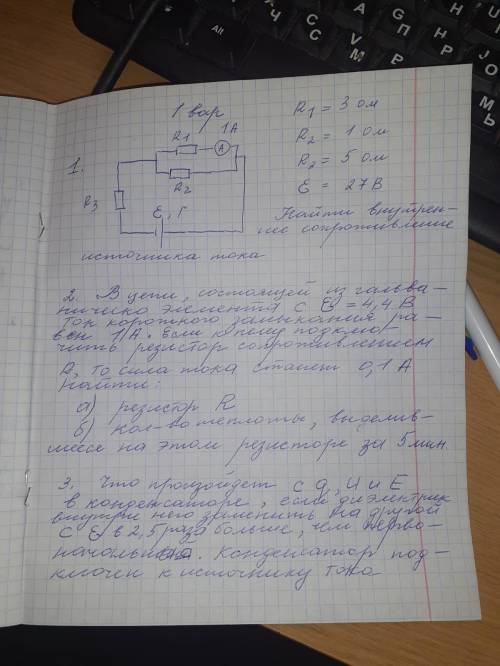 1 вар
R1 1A
A
1.
R2
R3
ε, r
R1 = 3 ом
R2 = 1 ом
R3 = 5 ом
ε = 27 В
Найти внутрен-
нее сопротивление
источника тока
2. В цепи, состоящей из гальва-
ническо элемента с ε = 4,4 В
Ток короткого замыкания ра-
вен 11А. Если к нему подклю-
чить резистор сопротивлением
R, то сила тока станет 0,1 А
Найти:
а) резистор R
б) кол-во теплоты, выделив-
шееся на этом резисторе за 5 мин.
3. Что произойдет с q, U и E
в конденсаторе, если диэлектрик
внутри него заменить на другой
с ε в 2,5 раза больше, чем перво-
начальной. Конденсатор под-
ключен к источнику тока
Alt